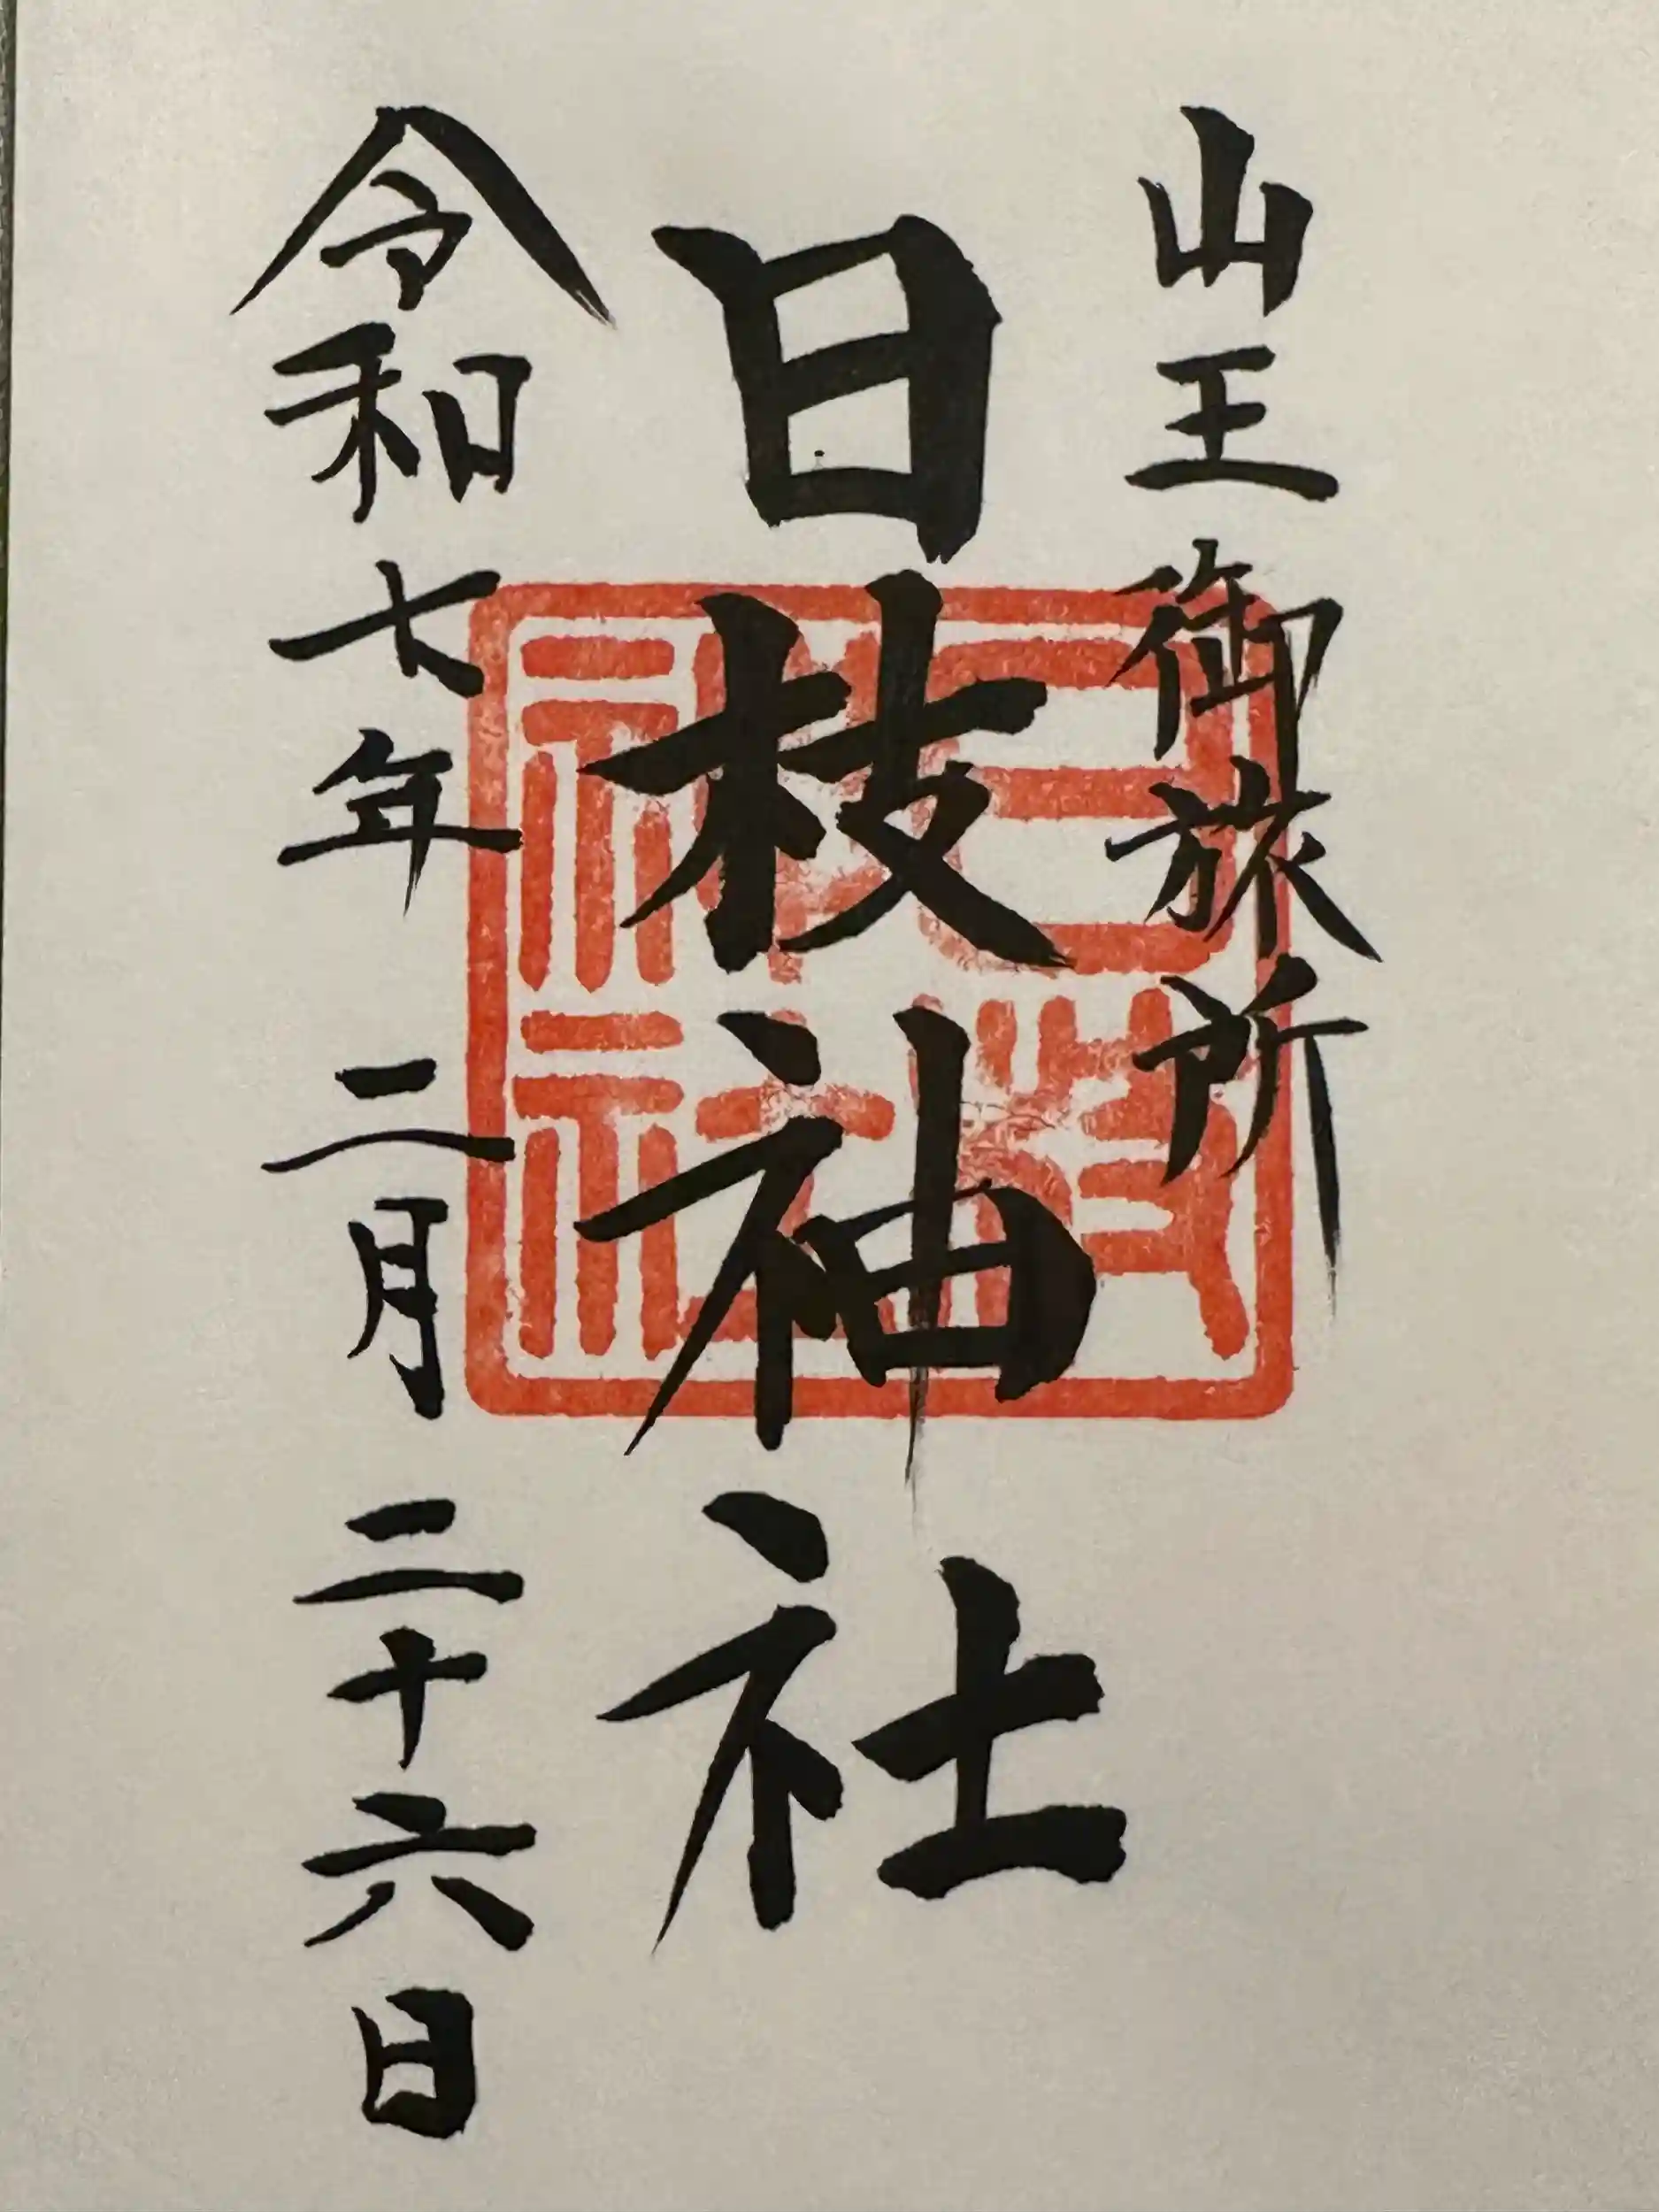 山王御旅所
日枝神社
令和七年二月二十六日
日枝神社